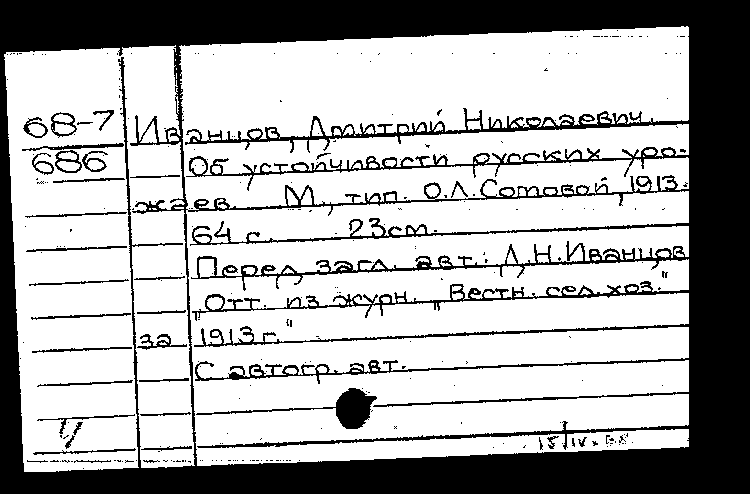 68-7 Иванцов, Дмитрий Николаевич.
686 Об устойчивости русских уро-
жаев. М., тип. О.Л.Сомовой, 1913.
64 с. 23см.
Перед загл. авт.: Д.Н.Иванцов
„Отт. из журн. „Вестн. сел.хоз."
за 1913г."
С автогр. авт.